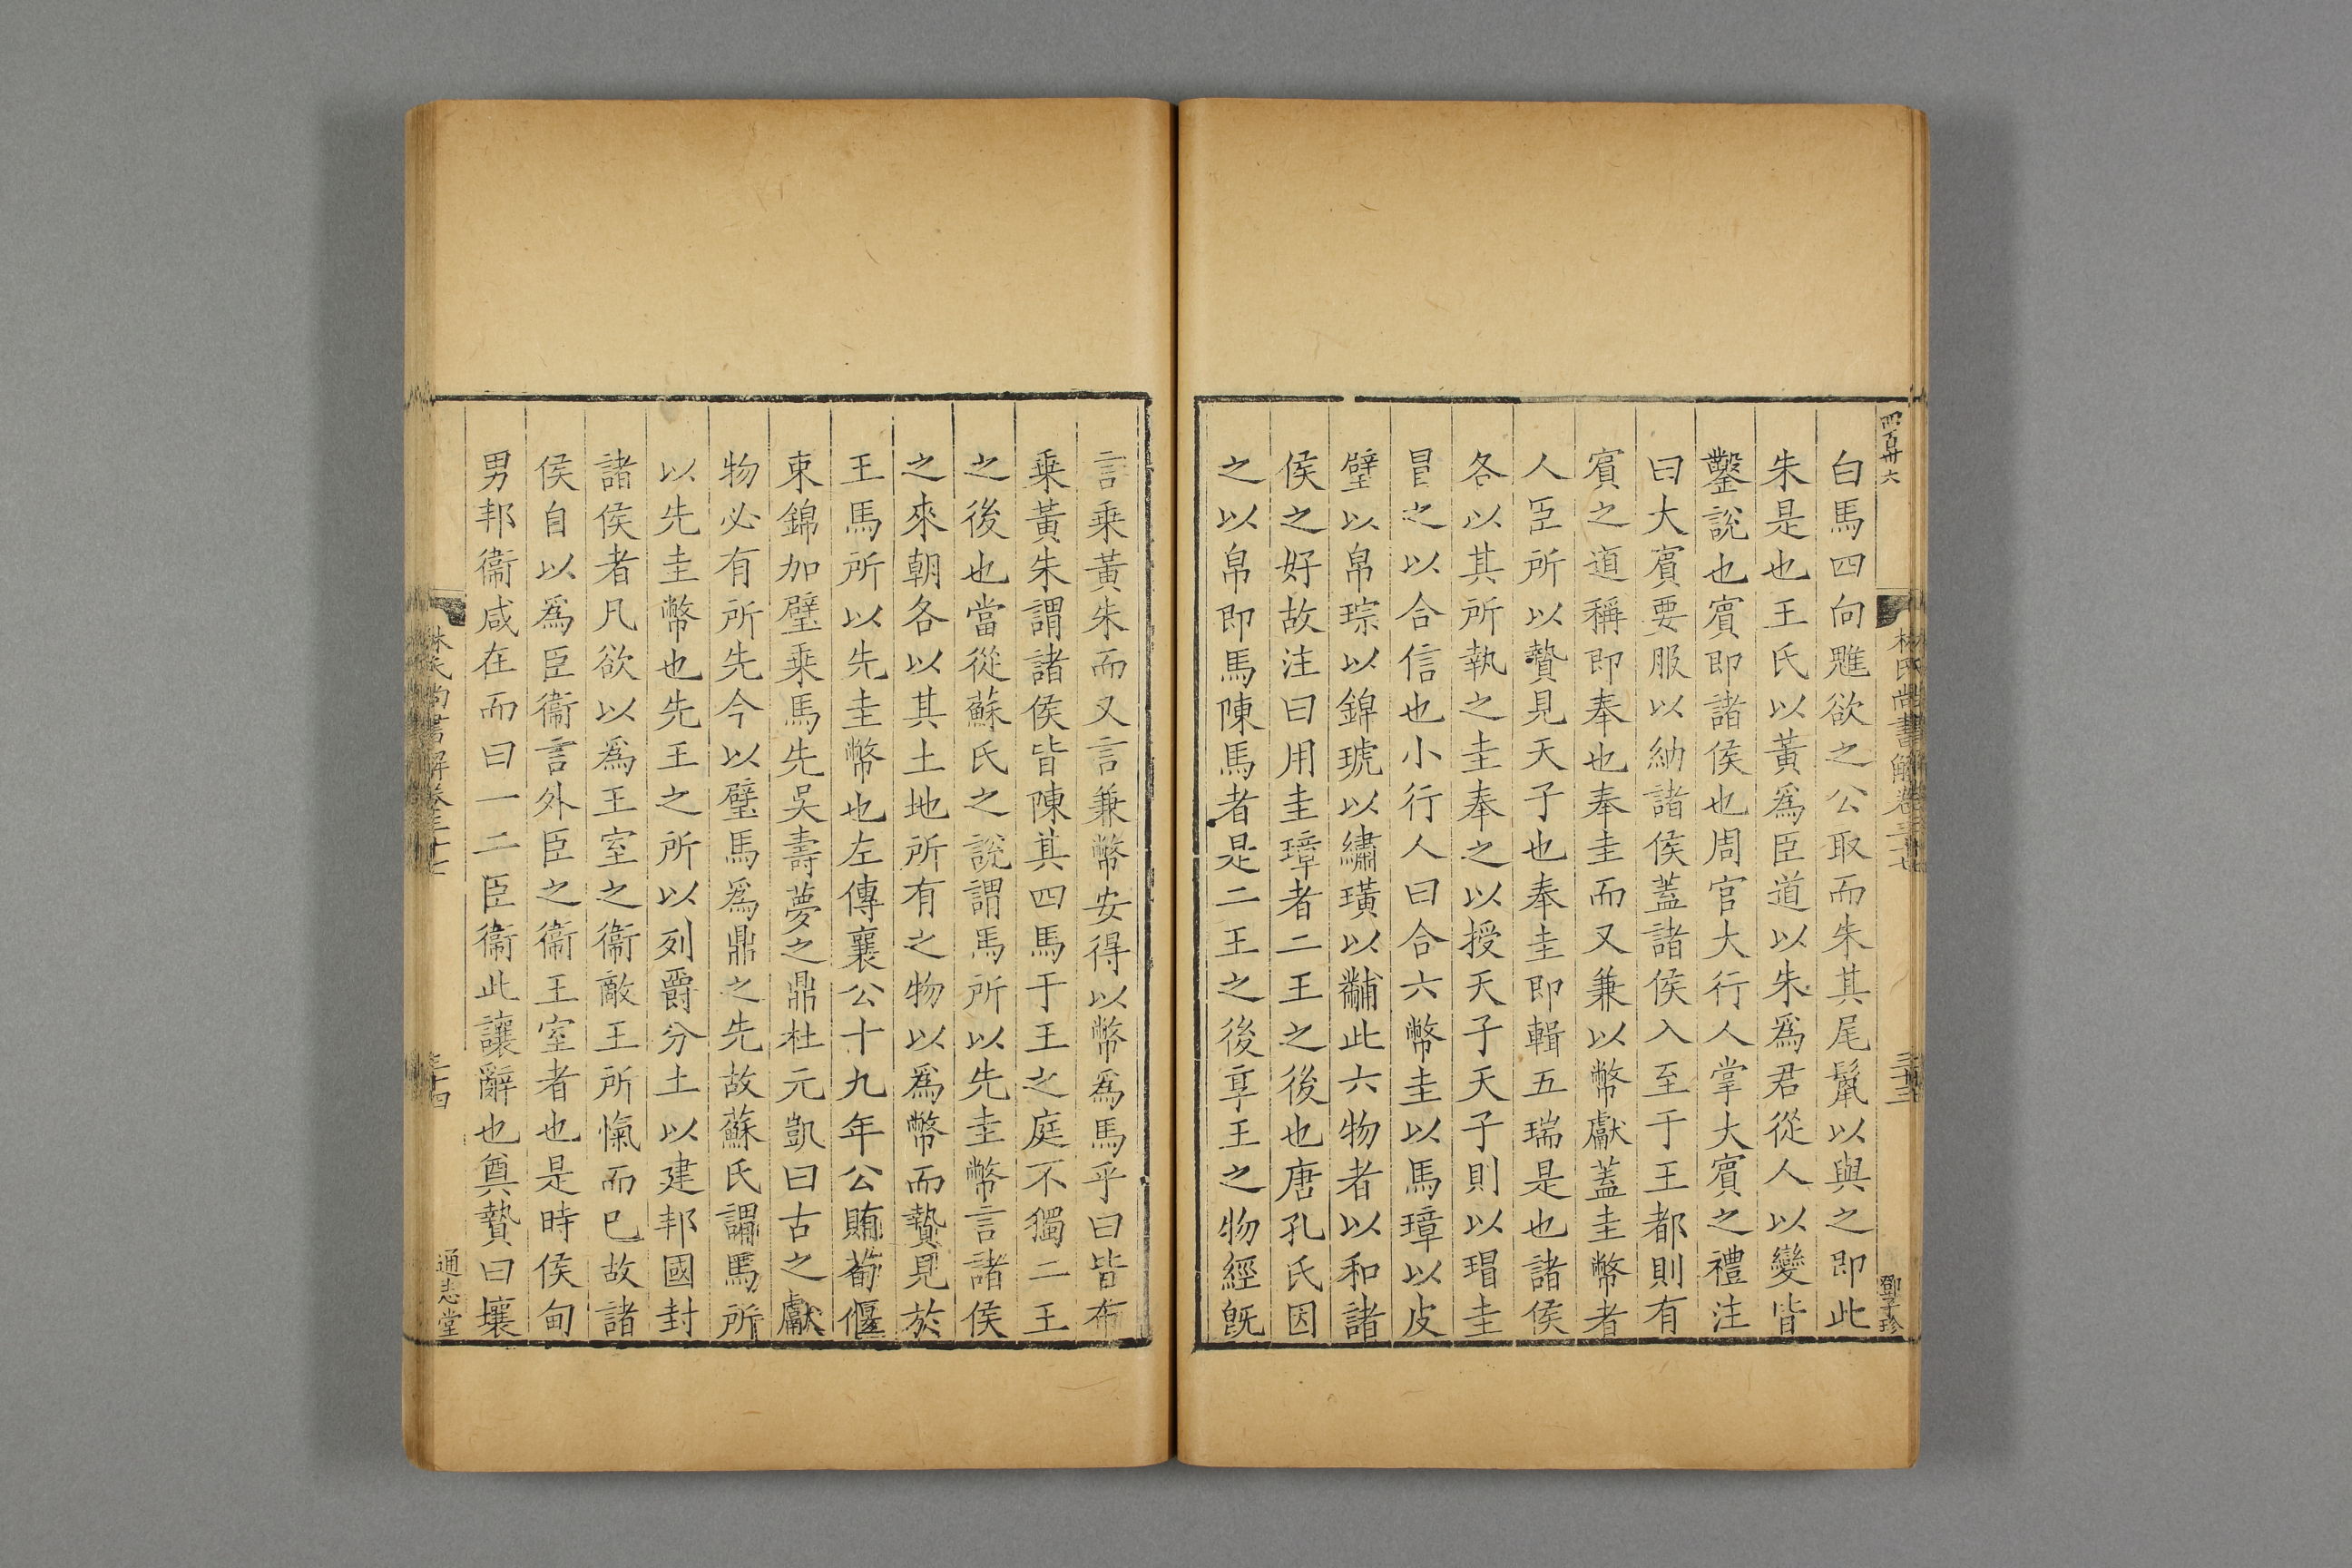 四百卅六
林氏尚書解卷三十七
三十三
鄧子珍
白馬四向魋欲之公取而朱其尾鬛以與之即此
朱是也王氏以黃爲臣道以朱爲君從人以變皆
鑿說也賔即諸侯也周官大行人掌大賔之禮注
曰大賔要服以納諸侯蓋諸侯入至于王都則有
賔之道稱即奉也奉圭而又兼以幣獻蓋圭幣者
人臣所以贄見天子也奉圭即輯五瑞是也諸侯
各以其所執之圭奉之以授天子天子則以瑁圭
冒之以合信也小行人曰合六幣圭以馬璋以皮
璧以帛琮以錦琥以繡璜以黼此六物者以和諸
侯之好故注曰用圭璋者二王之後也唐孔氏因
之以帛即馬陳馬者是二王之後享王之物經旣
言乗黃朱而又言兼幣安得以幣爲馬乎曰皆布
乗黃朱謂諸侯皆陳其四馬于王之庭不獨二王
之後也當從蘇氏之說謂馬所以先圭幣言諸侯
之來朝各以其土地所有之物以爲幣而贄見於
王馬所以先圭幣也左傳襄公十九年公賄荀偃
束錦加璧乗馬先吳壽夢之鼎杜元凱曰古之獻
物必有所先今以璧馬爲鼎之先故蘇氏謂馬所
以先圭幣也先王之所以列爵分土以建邦國封
諸侯者凡欲以爲王室之衞敵王所愾而已故諸
侯自以爲臣衞言外臣之衞王室者也是時侯甸
男邦衞咸在而曰一二臣衞此讓辭也奠贄曰壤
林氏尚書解卷三十七
三十四
通志堂